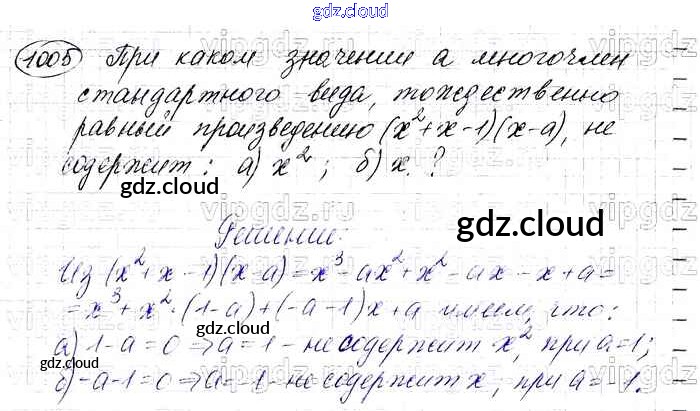 gdz.cloud
1005 При каком значении а многочлен
стандартного вида, тождественно
равный произведению (x²+x-1)(x-a), не
содержит: а) x²; б) x.?
gdz.cloud
gdz.cloud
Решение:
Из (x²+x-1)(x-a)=x³-ax²+x²-ax-x+a=
=x³+x²·(1-a)+(-a-1)x+a имеем, что:
gdz.cloud
а) 1-a=0⇒a=1-не содержит x², при a=1;
б) -a-1=0⇒a=-1-не содержит x, при a=-1.
gdz.cloud